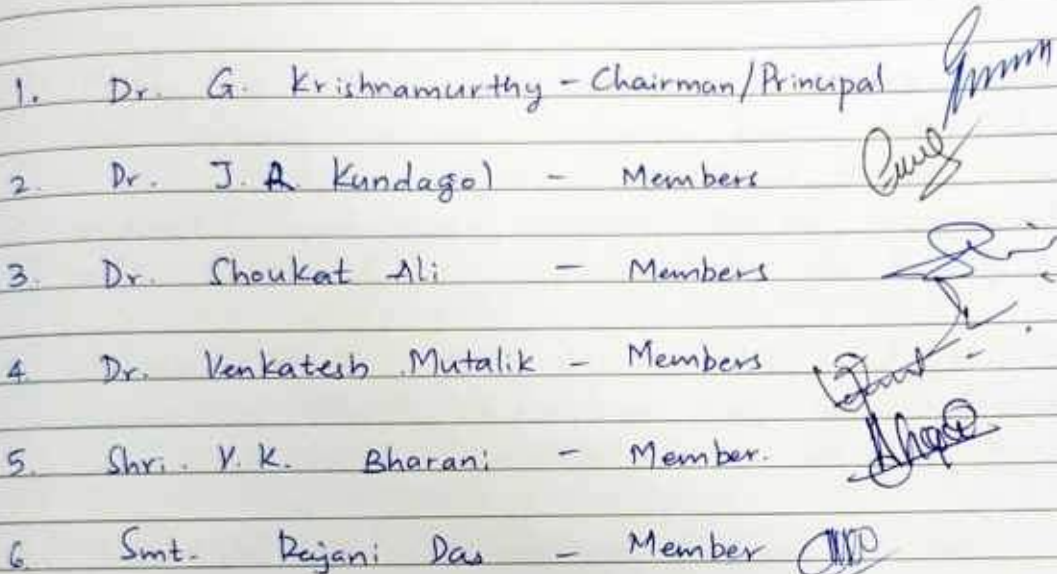 1. Dr. G. Krishnamurthy - Chairman/Principal
2. Dr. J. A. Kundagol - Members
3. Dr. Shoukat Ali - Members
4. Dr. Venkatesh Mutalik - Members
5. Shri. V. K. Bharani - Member.
6 Smt. Rajani Das - Member